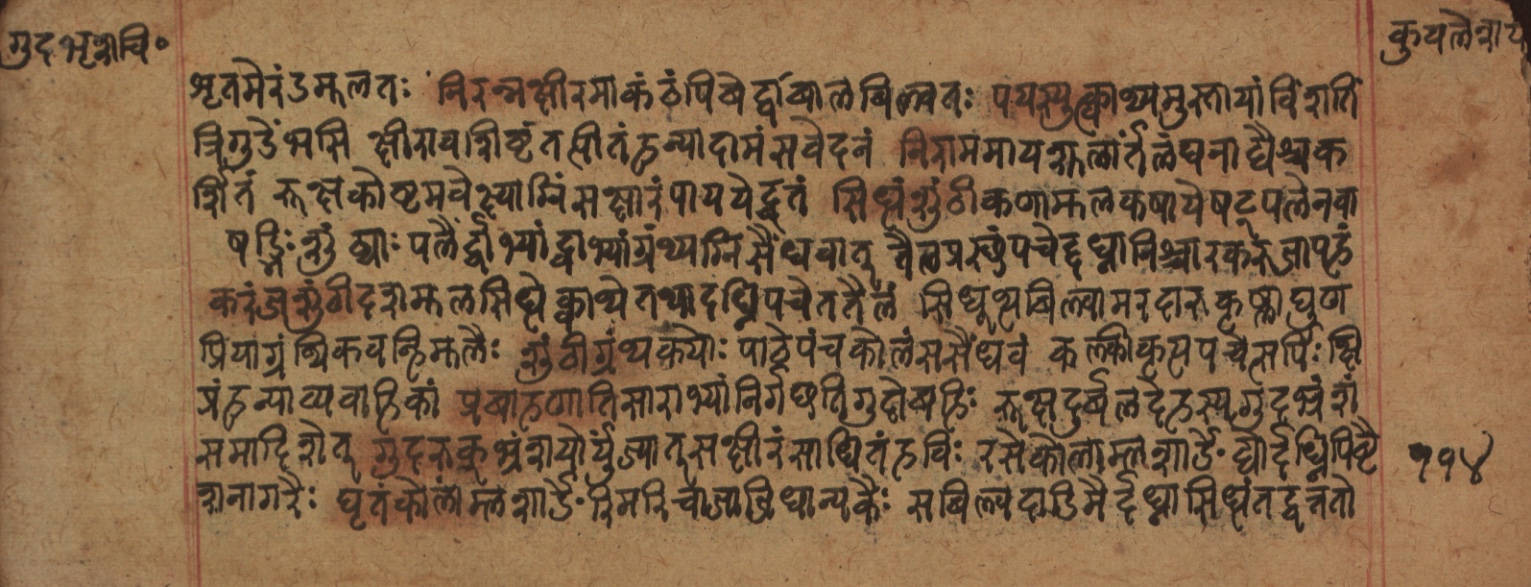 गुदभृशचि॰
कुपलैशाय
भृतमेरंडमूलतः निरन्नक्षीरमाकंठंपिवेद्द्वाबालबिल्वतः पयस्युत्क्वाथ्यमुस्तायाविंशति
त्रिगुडेंभसि क्षीरावशिष्टंतत्पीतंहन्यादामंसवेदनं निराममायशूलार्तंलंघनाद्यैश्चक
र्शितं रूक्षकोष्टमवेक्ष्याग्निंसक्षारंपाययेद्घृतं सिध्धंशुंठीकणामूलकषायेषट्पलेनवा
षड्भिः शुंठ्याः पलैर्द्वाभ्यांद्वाभ्यांग्रंथ्यग्निसैंधवात् तैलप्रस्थंपचेद्दध्नानिश्चारकरुजापहं
करंजशुंठीदशमूलसिध्धेक्वाथेतथादध्निपचेततैलं सिधूत्थबिल्वामरदारुकृष्णाघुण
प्रियाग्रंथिकवन्हिमूलैः शुंठीग्रंथकयोः पाठेपंचकोलंससैंधवं कल्कीकृत्यपचेत्सर्पिः क्षि
प्रंहन्याव्यवाहिकां प्रवाहणातिसाराभ्यांनिर्गछतिगुदोबहिः रूक्षदुर्बलदेहस्यगुदभ्रंशं
समादिशेत् गुदरुक्भ्रंशयोर्युंज्यात्सक्षीरंसाधितंहविः रसेकोलाम्लशार्ङे॰र्द्यौर्दध्निपिष्टै
श्चनागरैः घृतंकोलाम्लशार्ङे॰रिमरिचाजाजिधान्यकैः सबिल्वदाडिमैर्दध्नासिध्धंतद्वत्ततो
११४